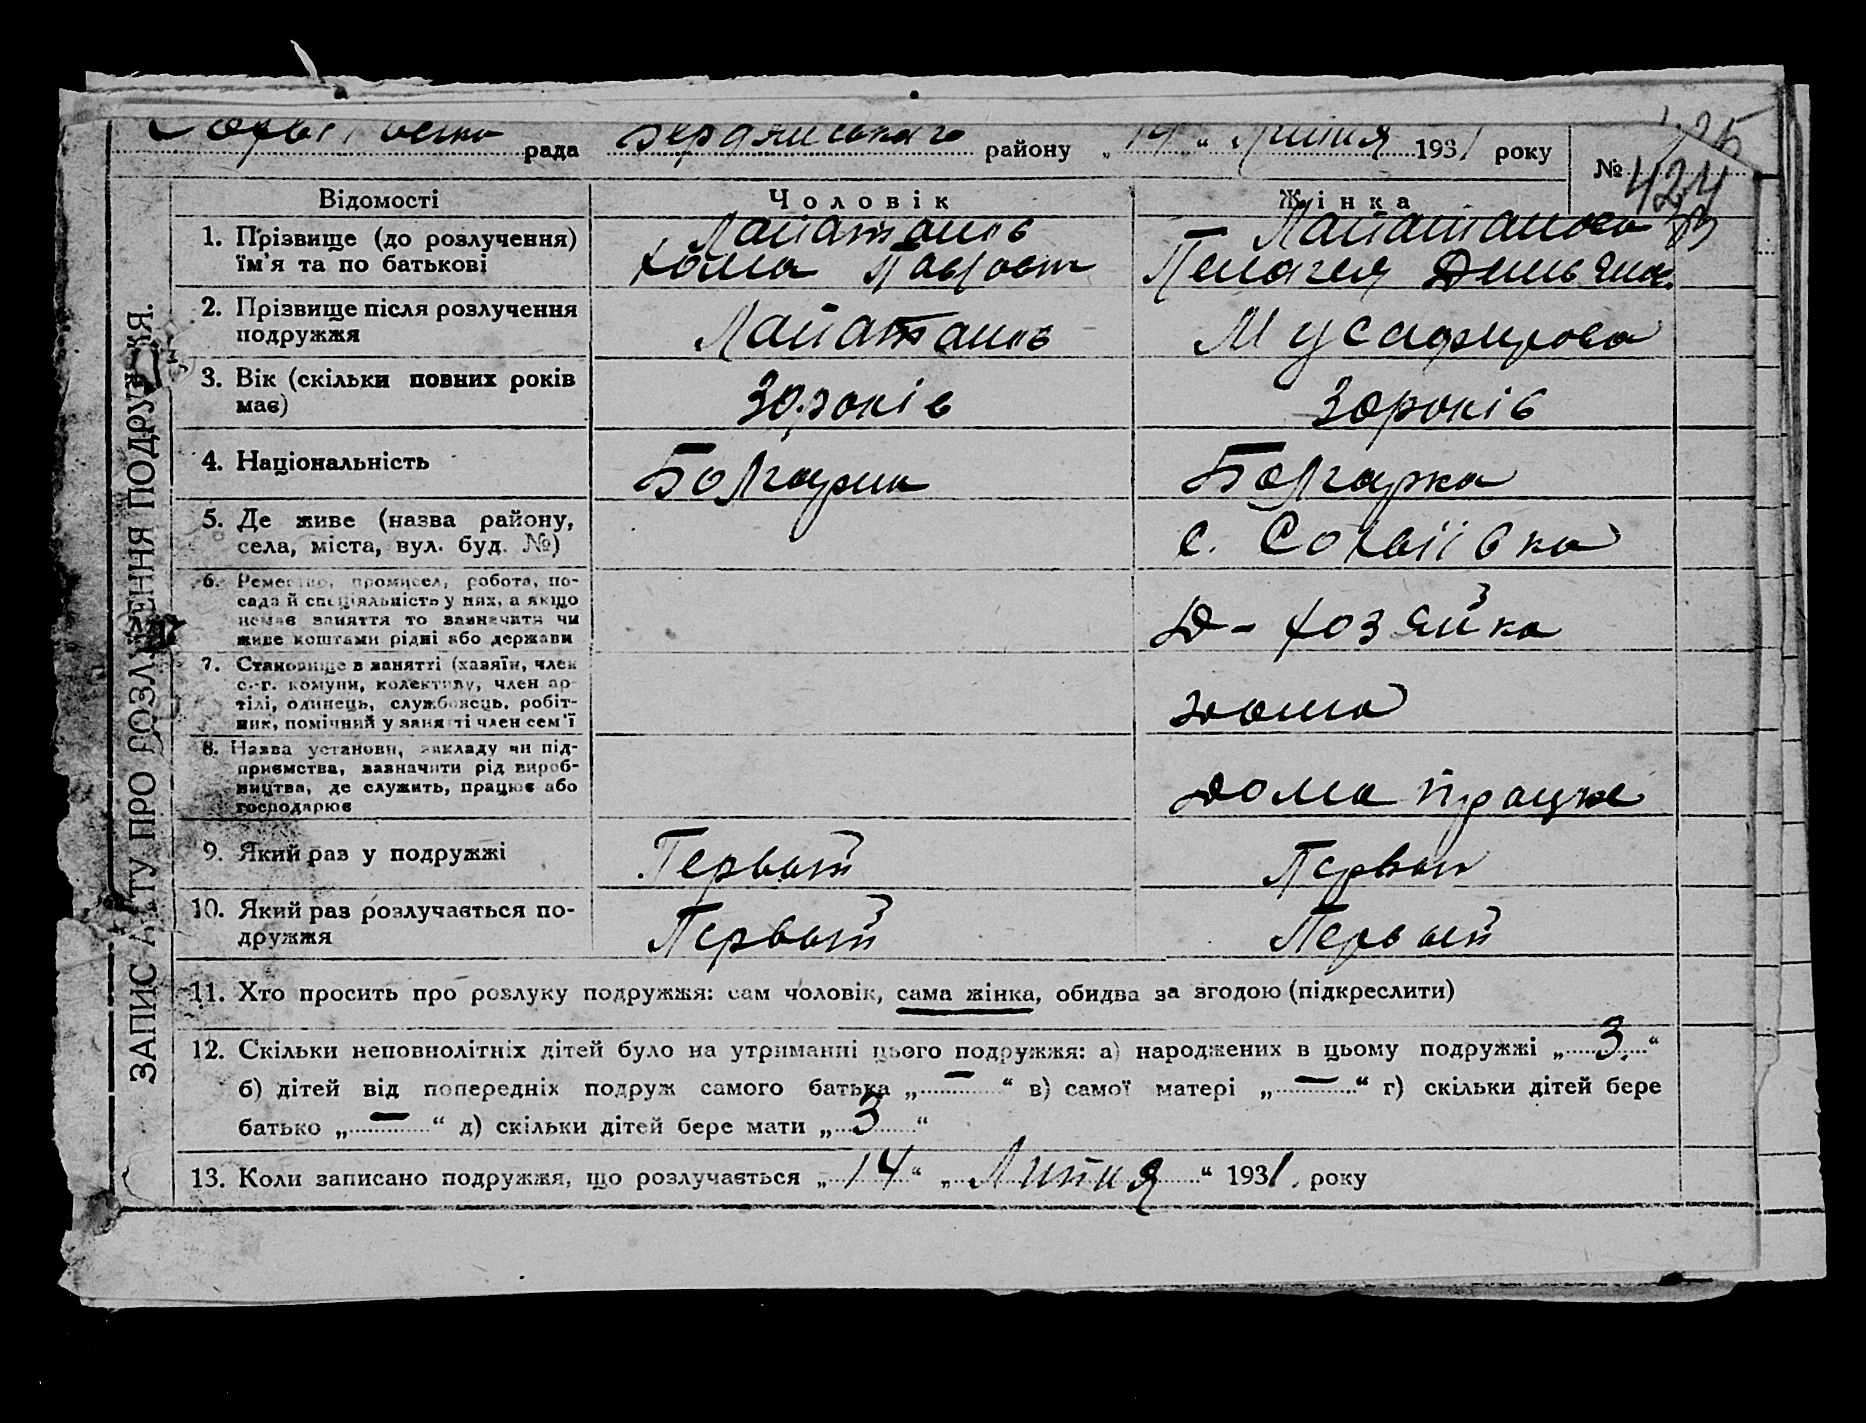 рада Бердянського району „14“ Липня 1931 року
№ 424
Відомості Чоловік Жінка
1. Прізвище (до розлучення) їм'я та по батькові
Хома Пелагея
2. Прізвище після розлучення подружжя
Мусафирова
3. Вік (скільки повних років має)
30 років 30 років
4. Національність
Болгарин Болгарка
5. Де живе (назва району, села, міста, вул. буд. №)
с. Софіївка
6. Ремество, промисел, робота, по-
сада й спеціяльність у них, а якщо
немає заняття то зазначити чи
живе коштами рідні або держави
Д-хозяйка
7. Становище в занятті (хазяїн, член
с.-г. комуни, колективу, член ар-
тілі, одинець, службовець, робіт-
ник, помічний у занятті член сем'ї
дома
8. Назва установи, закладу чи під-
приємства, зазначити рід вироб-
ництва, де служить, працює або
господарює
дома працює
9. Який раз у подружжі
Первый Первый
10. Який раз розлучається по-
дружжя
Первый Первый
11. Хто просить про розлуку подружжя: сам чоловік, сама жінка, обидва за згодою (підкреслити)
12. Скільки неповнолітніх дітей було на утриманні цього подружжя: а) народжених в цьому подружжі „3.“
б) дітей від попередніх подруж самого батька „—“ в) самої матері „—“ г) скільки дітей бере
батько „—“ д) скільки дітей бере мати „3“
13. Коли записано подружжя, що розлучається „14“ „Липня“ 1931. року
ЗАПИС АКТУ ПРО РОЗЛУЧЕННЯ ПОДРУЖЖЯ.